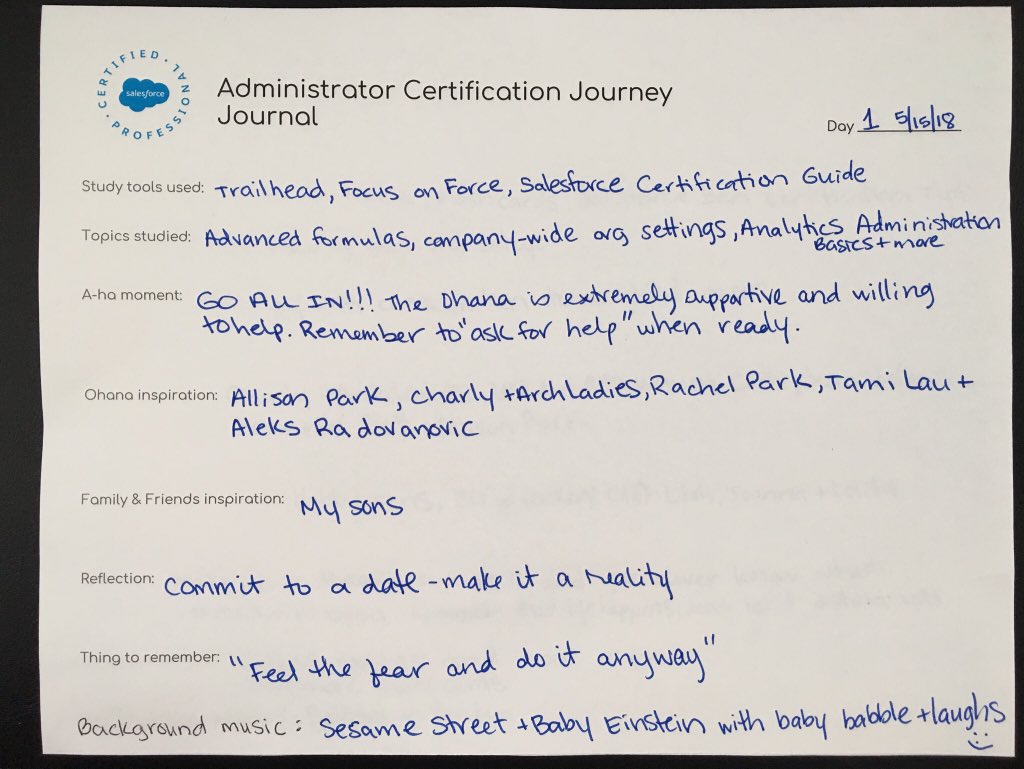 CERTIFIED · PROFESSIONAL ·
salesforce
Administrator Certification Journey
Journal
Day 1 5/15/18
Study tools used: Trailhead, Focus on Force, Salesforce Certification Guide
Topics studied: Advanced formulas, company-wide org settings, Analytics Administration
Basics + more
A-ha moment: GO ALL IN!!! The Ohana is extremely supportive and willing
to help. Remember to "ask for help" when ready.
Ohana inspiration: Allison Park, Charly + Archladies, Rachel Park, Tami Lau +
Aleks Radovanovic
Family & Friends inspiration: My sons
Reflection: Commit to a date - make it a reality
Thing to remember: "Feel the fear and do it anyway"
Background music: Sesame Street + Baby Einstein with baby babble + laughs